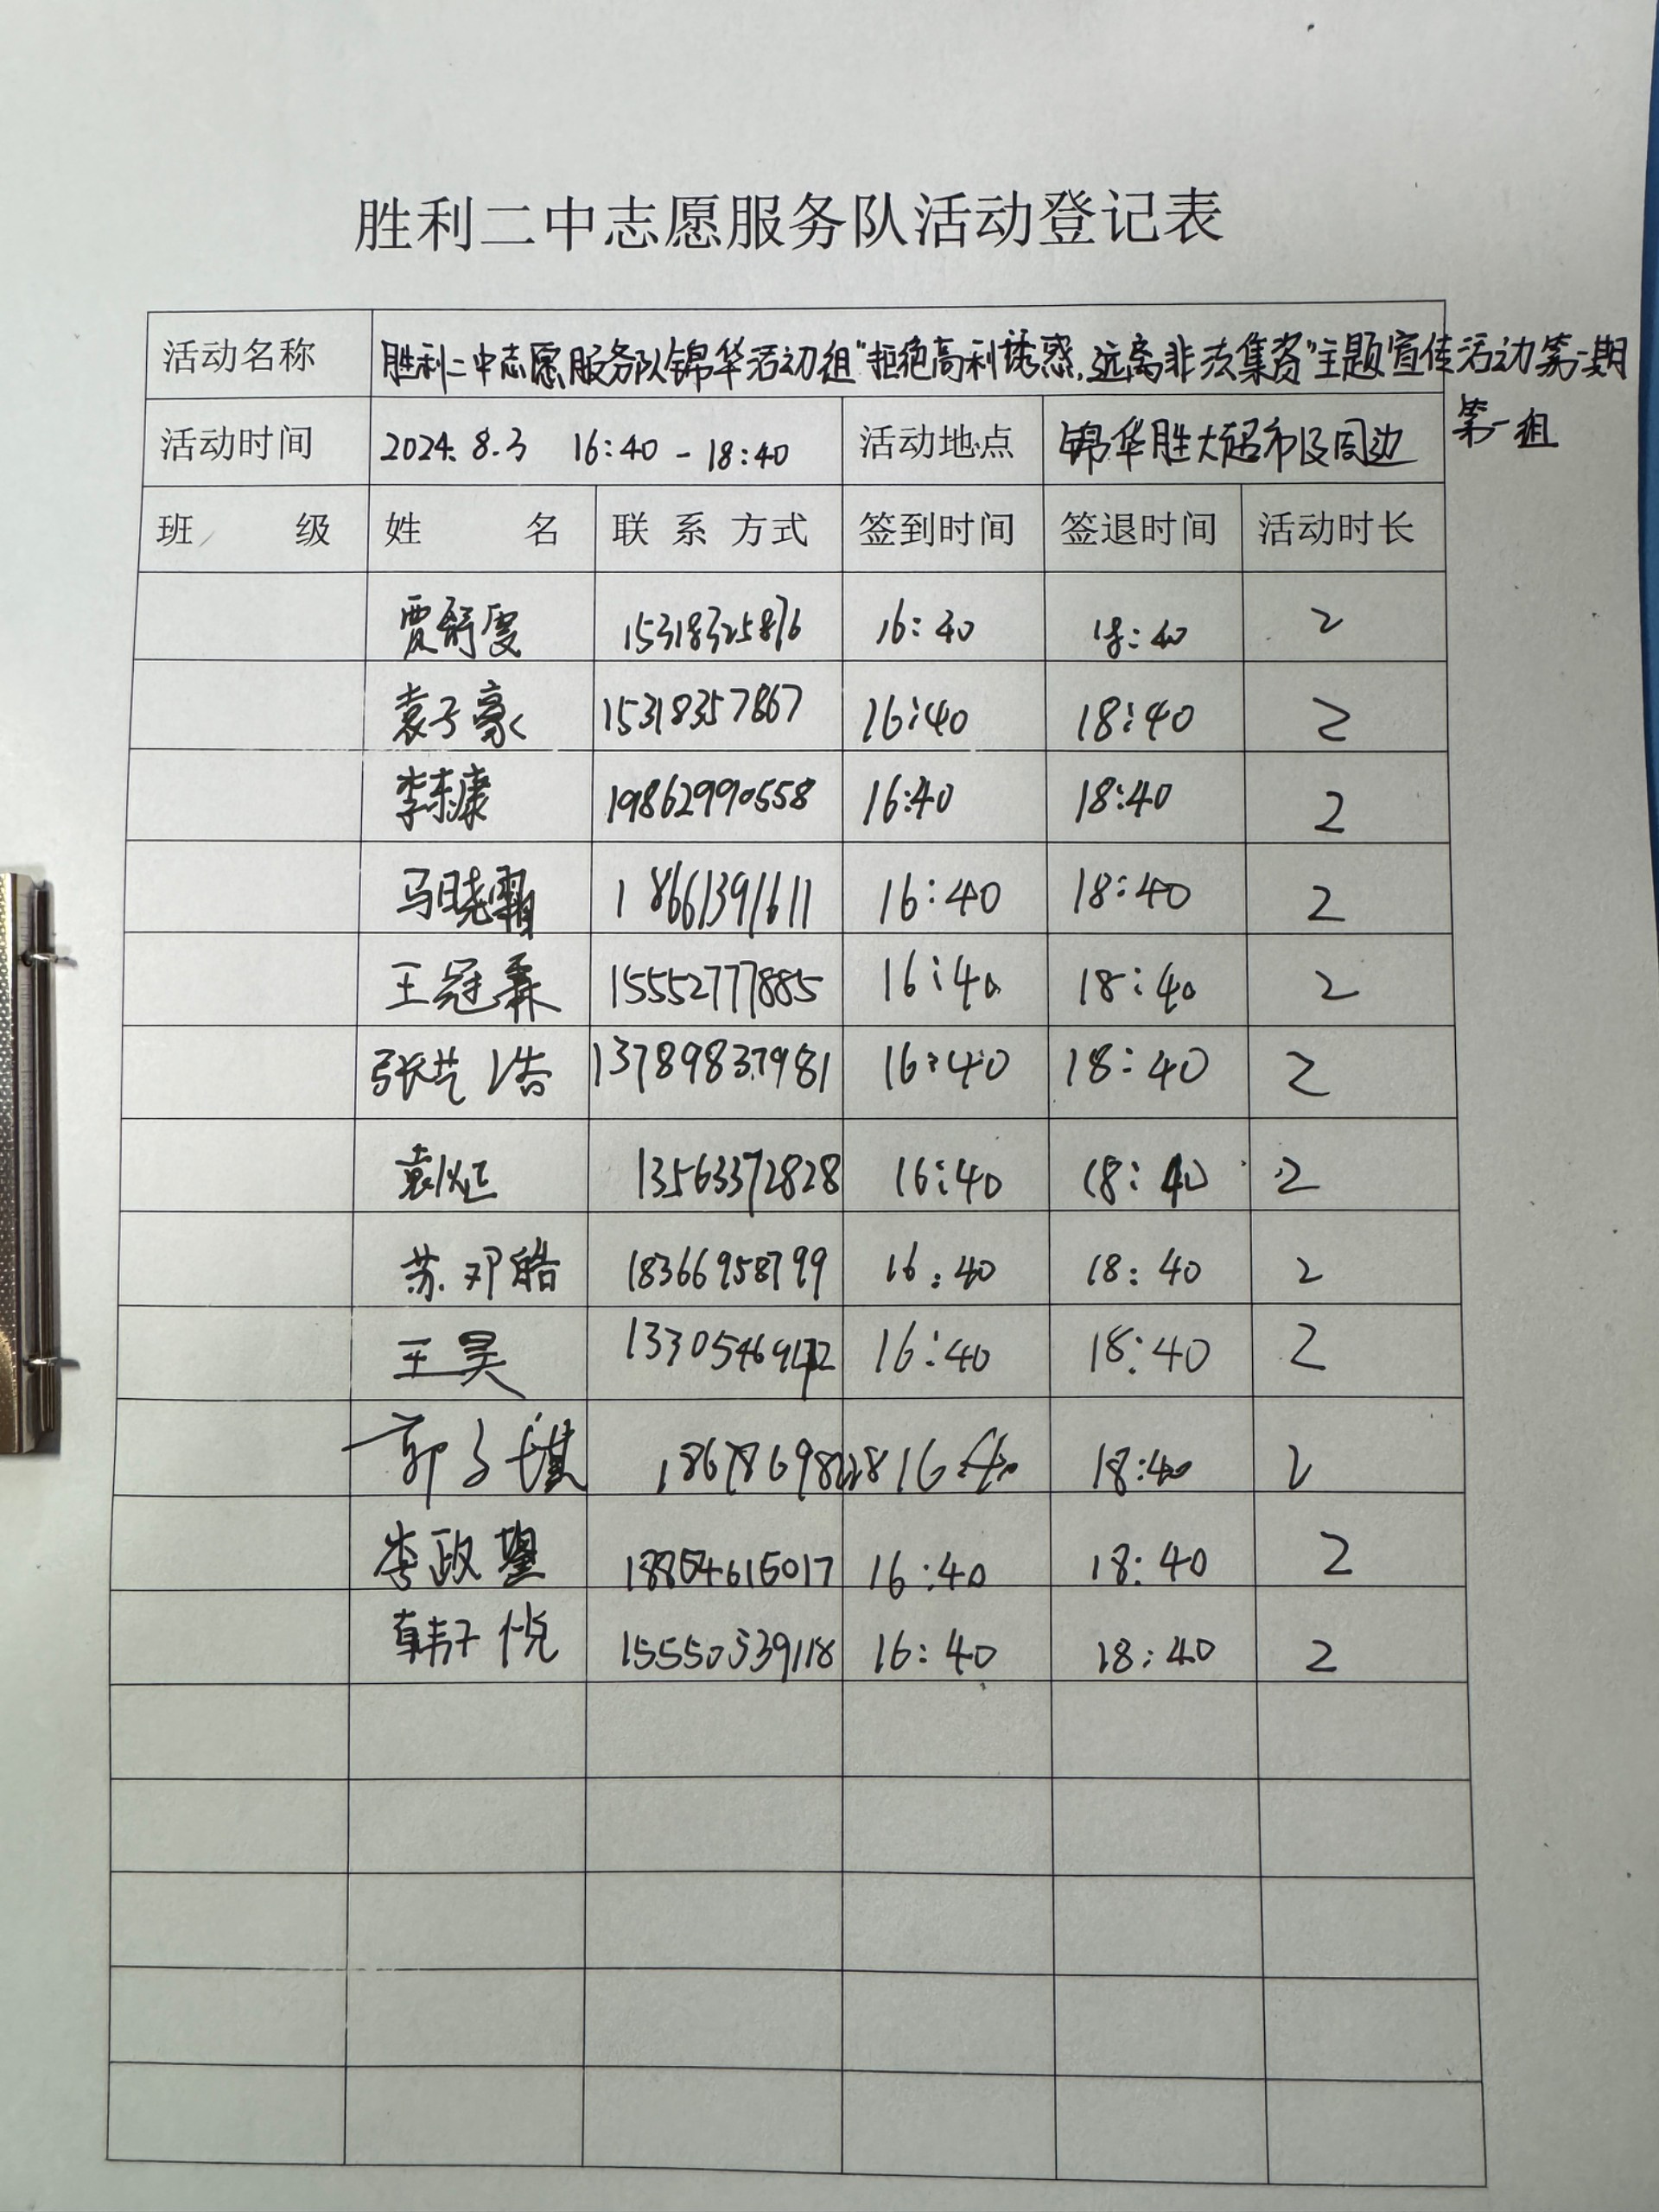 胜利二中志愿服务队活动登记表
活动名称 胜利二中志愿服务队锦华活动组"拒绝高利诱惑,远离非法集资"主题宣传活动第一期
第一组
活动时间 2024.8.3 16:40-18:40 活动地点 锦华胜大超市及周边
班 级 姓 名 联系方式 签到时间 签退时间 活动时长
贾舒雯 15318325876 16:40 18:40 2
袁子豪 15318357867 16:40 18:40 2
李东康 19862990558 16:40 18:40 2
马晓 18661391611 16:40 18:40 2
王冠霖 15552777885 16:40 18:40 2
张艺浩 13789837981 16:40 18:40 2
袁 13563372828 16:40 18:40 2
苏邓皓 18366958799 16:40 18:40 2
王昊 16:40 18:40 2
郭子琪 16:40 18:40 2
李政 18854615017 16:40 18:40 2
韩子悦 15550539118 16:40 18:40 2